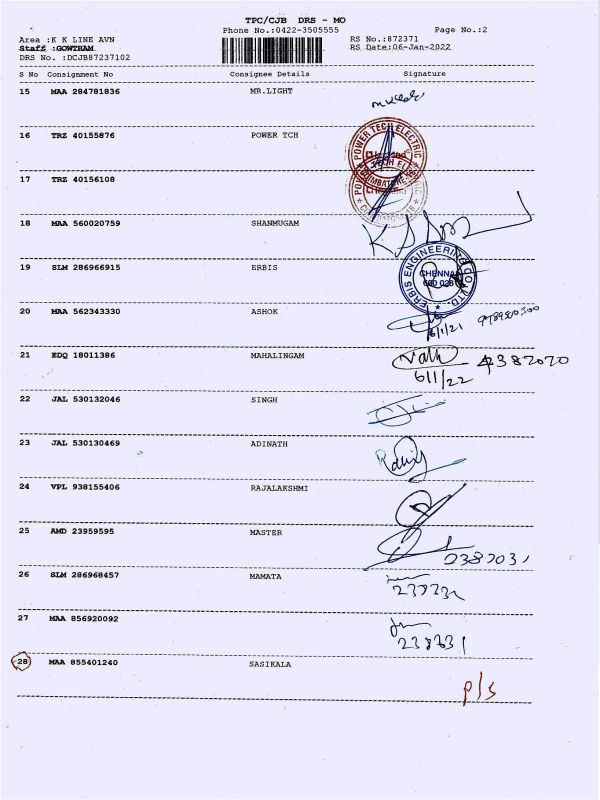 TPC/CJB DRS - MO
Phone No.:0422-3505555 Page No.:2
Area :K K LINE AVN RS No.:872371
Staff :GOWTHAM RS Date:06-Jan-2022
DRS No. :DCJB87237102
S No Consignment No Consignee Details Signature
15 MAA 284781836 MR.LIGHT
16 TRZ 40155876 POWER TCH
POWER TECH ELECTRIC
17 TRZ 40156108
18 MAA 560020759 SHANMUGAM
19 SLM 286966915 ERBIS
ERBIS ENGINEERING CO. LTD.
CHENNAI
600 028
20 MAA 562343330 ASHOK
6/1/21
21 EDQ 18011386 MAHALINGAM
4382020
6/1/22
22 JAL 530132046 SINGH
23 JAL 530130469 ADINATH
24 VPL 938155406 RAJALAKSHMI
25 AMD 23959595 MASTER
26 SLM 286968457 MAMATA
27 MAA 856920092
28 MAA 855401240 SASIKALA
P/S